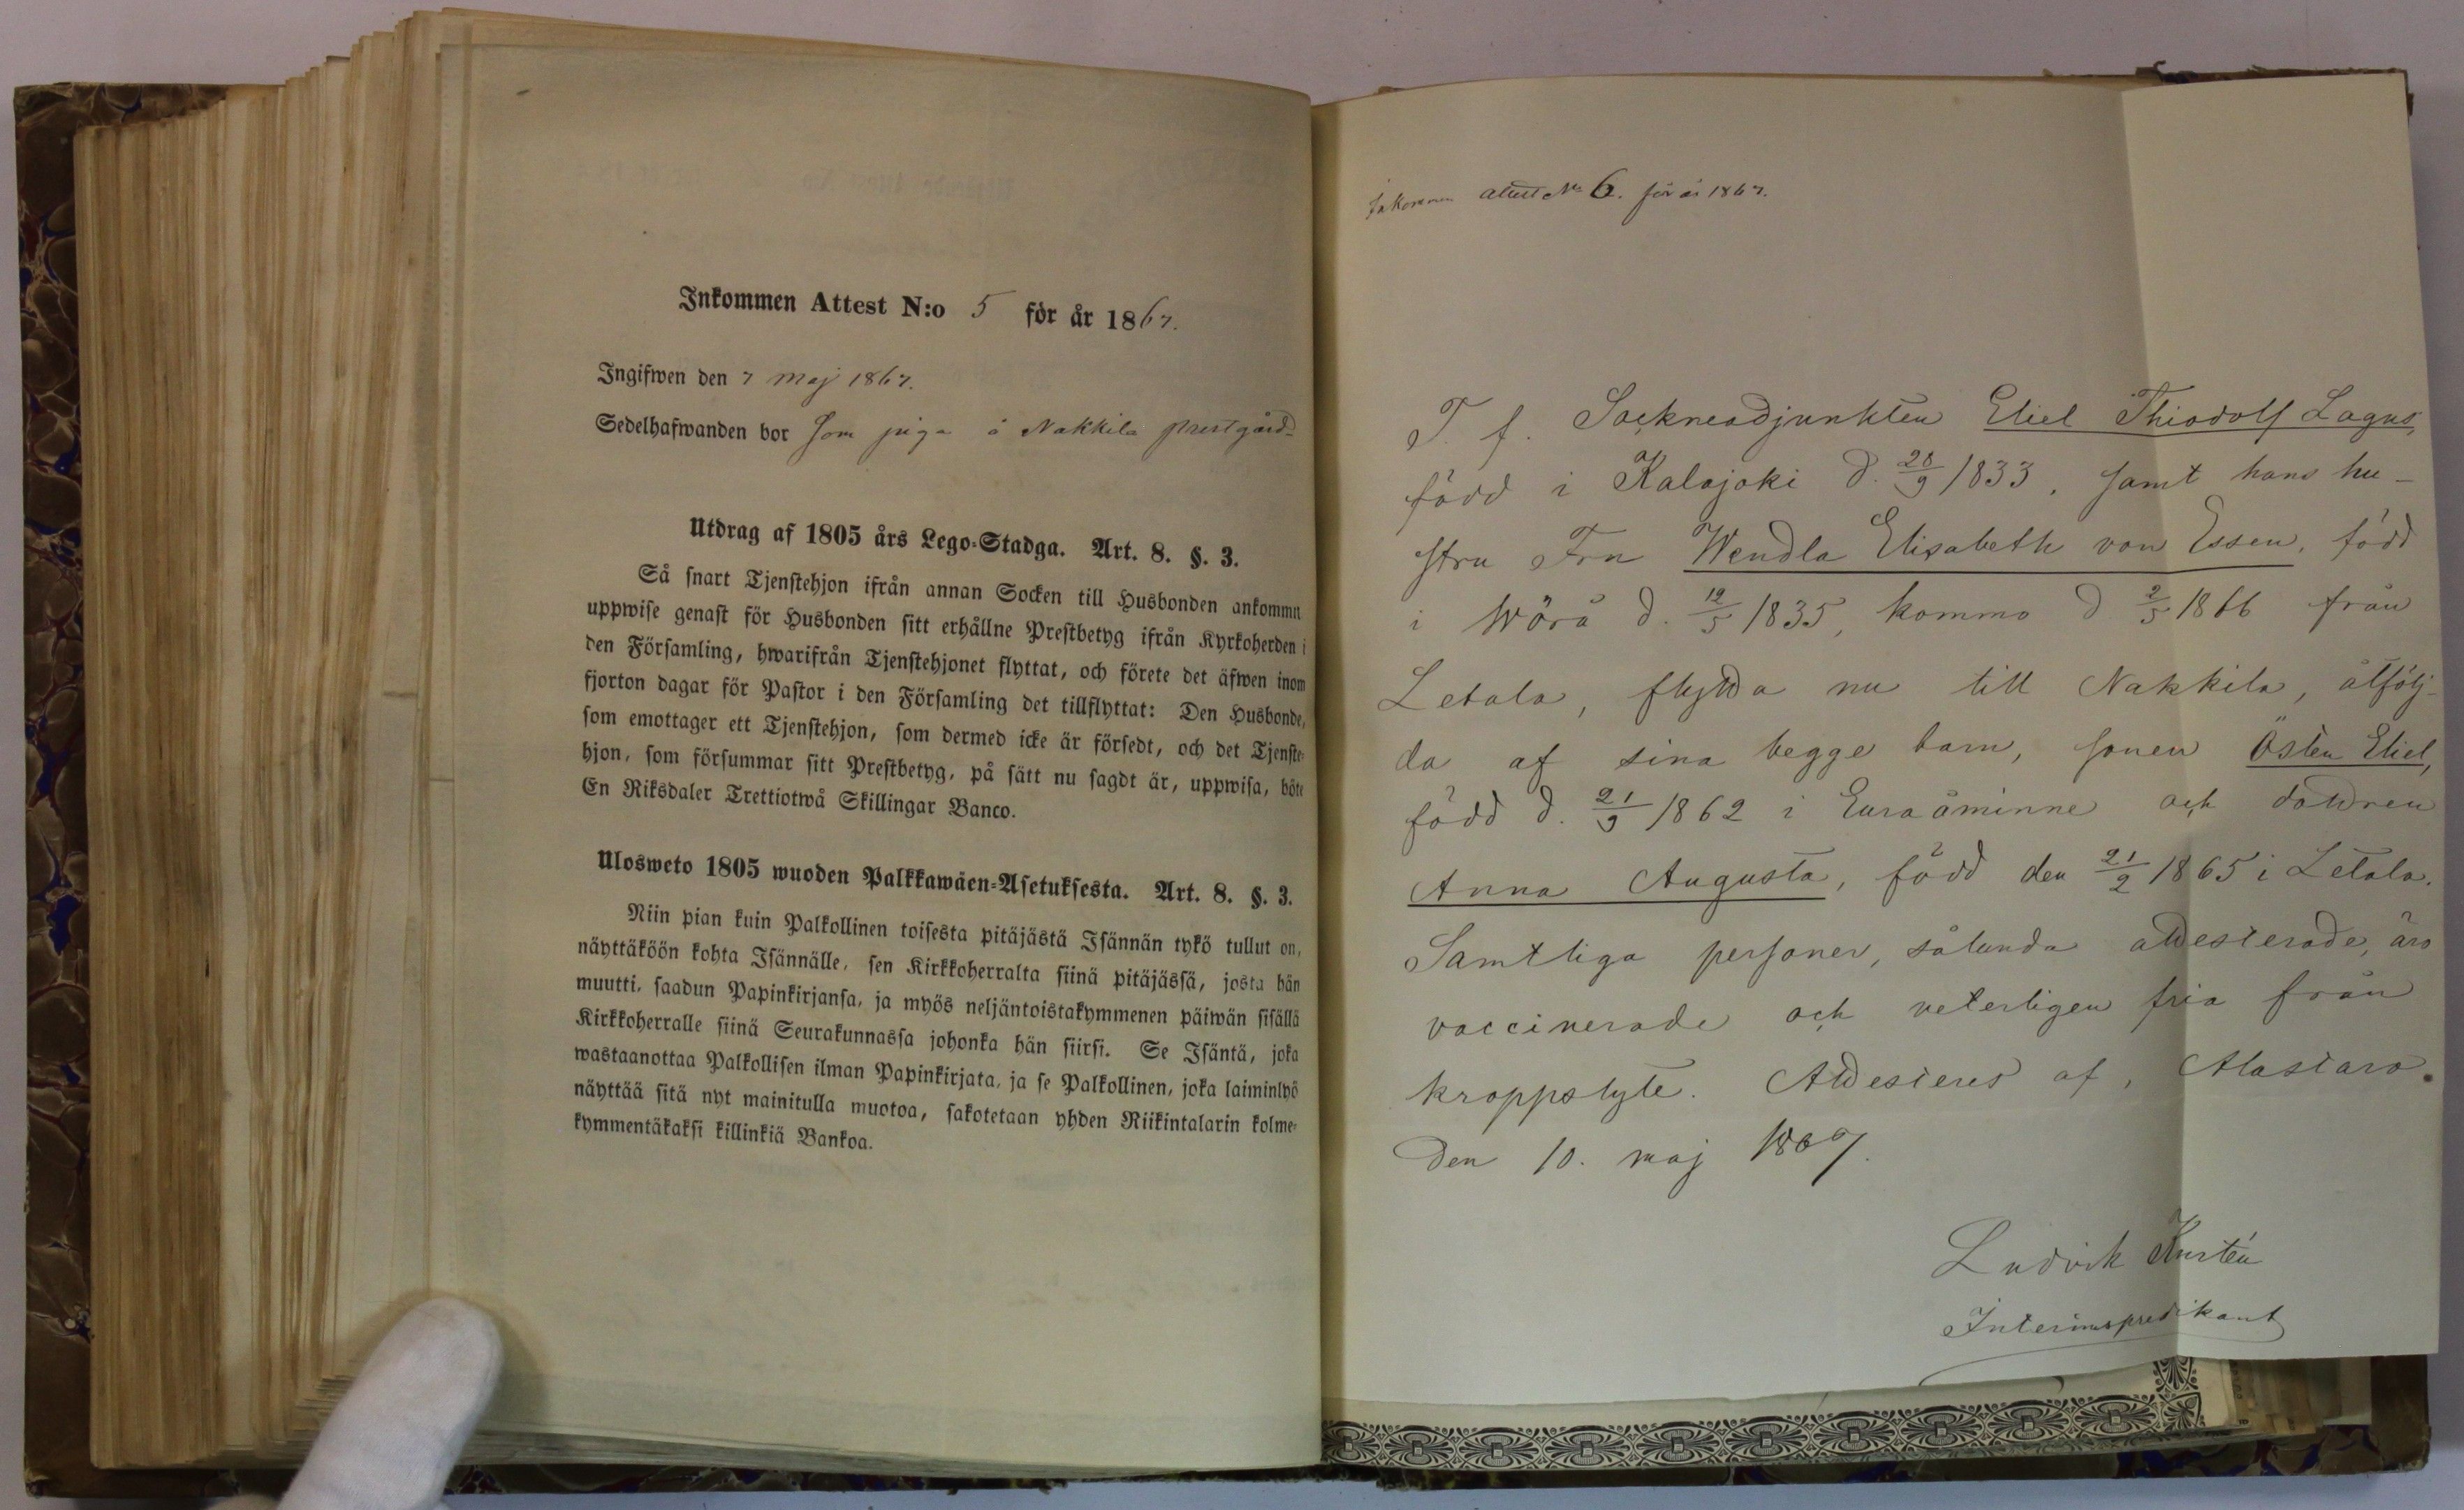 Inkommen Attest N:o 5 för år 1867.
Ingifwen den 7 maj 1867.
Sedelhafwanden bor som piga å Nakkila prestgård
Utdrag af 1805 års Lego-Stadga. Art. 8. §. 3.
Så snart Tjenstehjon ifrån annan Socken till Husbonden ankommit
uppwise genast för Husbonden sitt erhållne Prestbetyg ifrån Kyrkoherden i
den Församling, hwarifrån Tjenstehjonet flyttat, och förete det äfwen inom
fjorton dagar för Pastor i den Församling det tillflyttat: Den Husbonde,
som emottager ett Tjenstehjon, som dermed icke är försedt, och det Tjenste-
hjon, som försummar sitt Prestbetyg, på sätt nu sagdt är, uppwisa, böte
En Riksdaler Trettiotwå Skillingar Banco.
Ulosweto 1805 wuoden Palkkawäen-Asetuksesta. Art. 8. §. 3.
Niin pian kuin Palkollinen toisesta pitäjästä Isännän tykö tullut on,
näyttäköön kohta Isännälle, sen Kirkkoherralta siinä pitäjässä, josta hän
muutti, saadun Papinkirjansa, ja myös neljäntoistakymmenen päiwän sisällä
Kirkkoherralle siinä Seurakunnassa johonka hän siirsi. Se Isäntä, joka
wastaanottaa Palkollisen ilman Papinkirjata, ja se Palkollinen, joka laiminlyö
näyttää sitä nyt mainitulla muotoa, sakotetaan yhden Riikintalarin kolme-
kymmentäkaksi killinkiä Bankoa.
Inkommen attest No 6. för år 1867.
T. f. Sockneadjunkten Eliel Thiodolf Lagus,
född i Kalajoki d. 28/9 1833, samt hans hu-
stru Fru Wendla Elisabeth von Essen, född
i Wörå d. 12/5 1835, kommo d 2/5 1866 från
Letala, flytta nu till Nakkila, åtfölj-
da af sina begge barn, sonen Östen Eliel,
född d. 21/9 1862 i Euraåminne och dottren
Anna Augusta, född den 21/2 1865 i Letala.
Samtliga personer, sålunda attesterade, äro
vaccinerade och veterligen fria från
kroppslyte. Attesteres af, Alastaro.
den 10. maj 1867.
Ludvik Kurtén
Interimspredikant